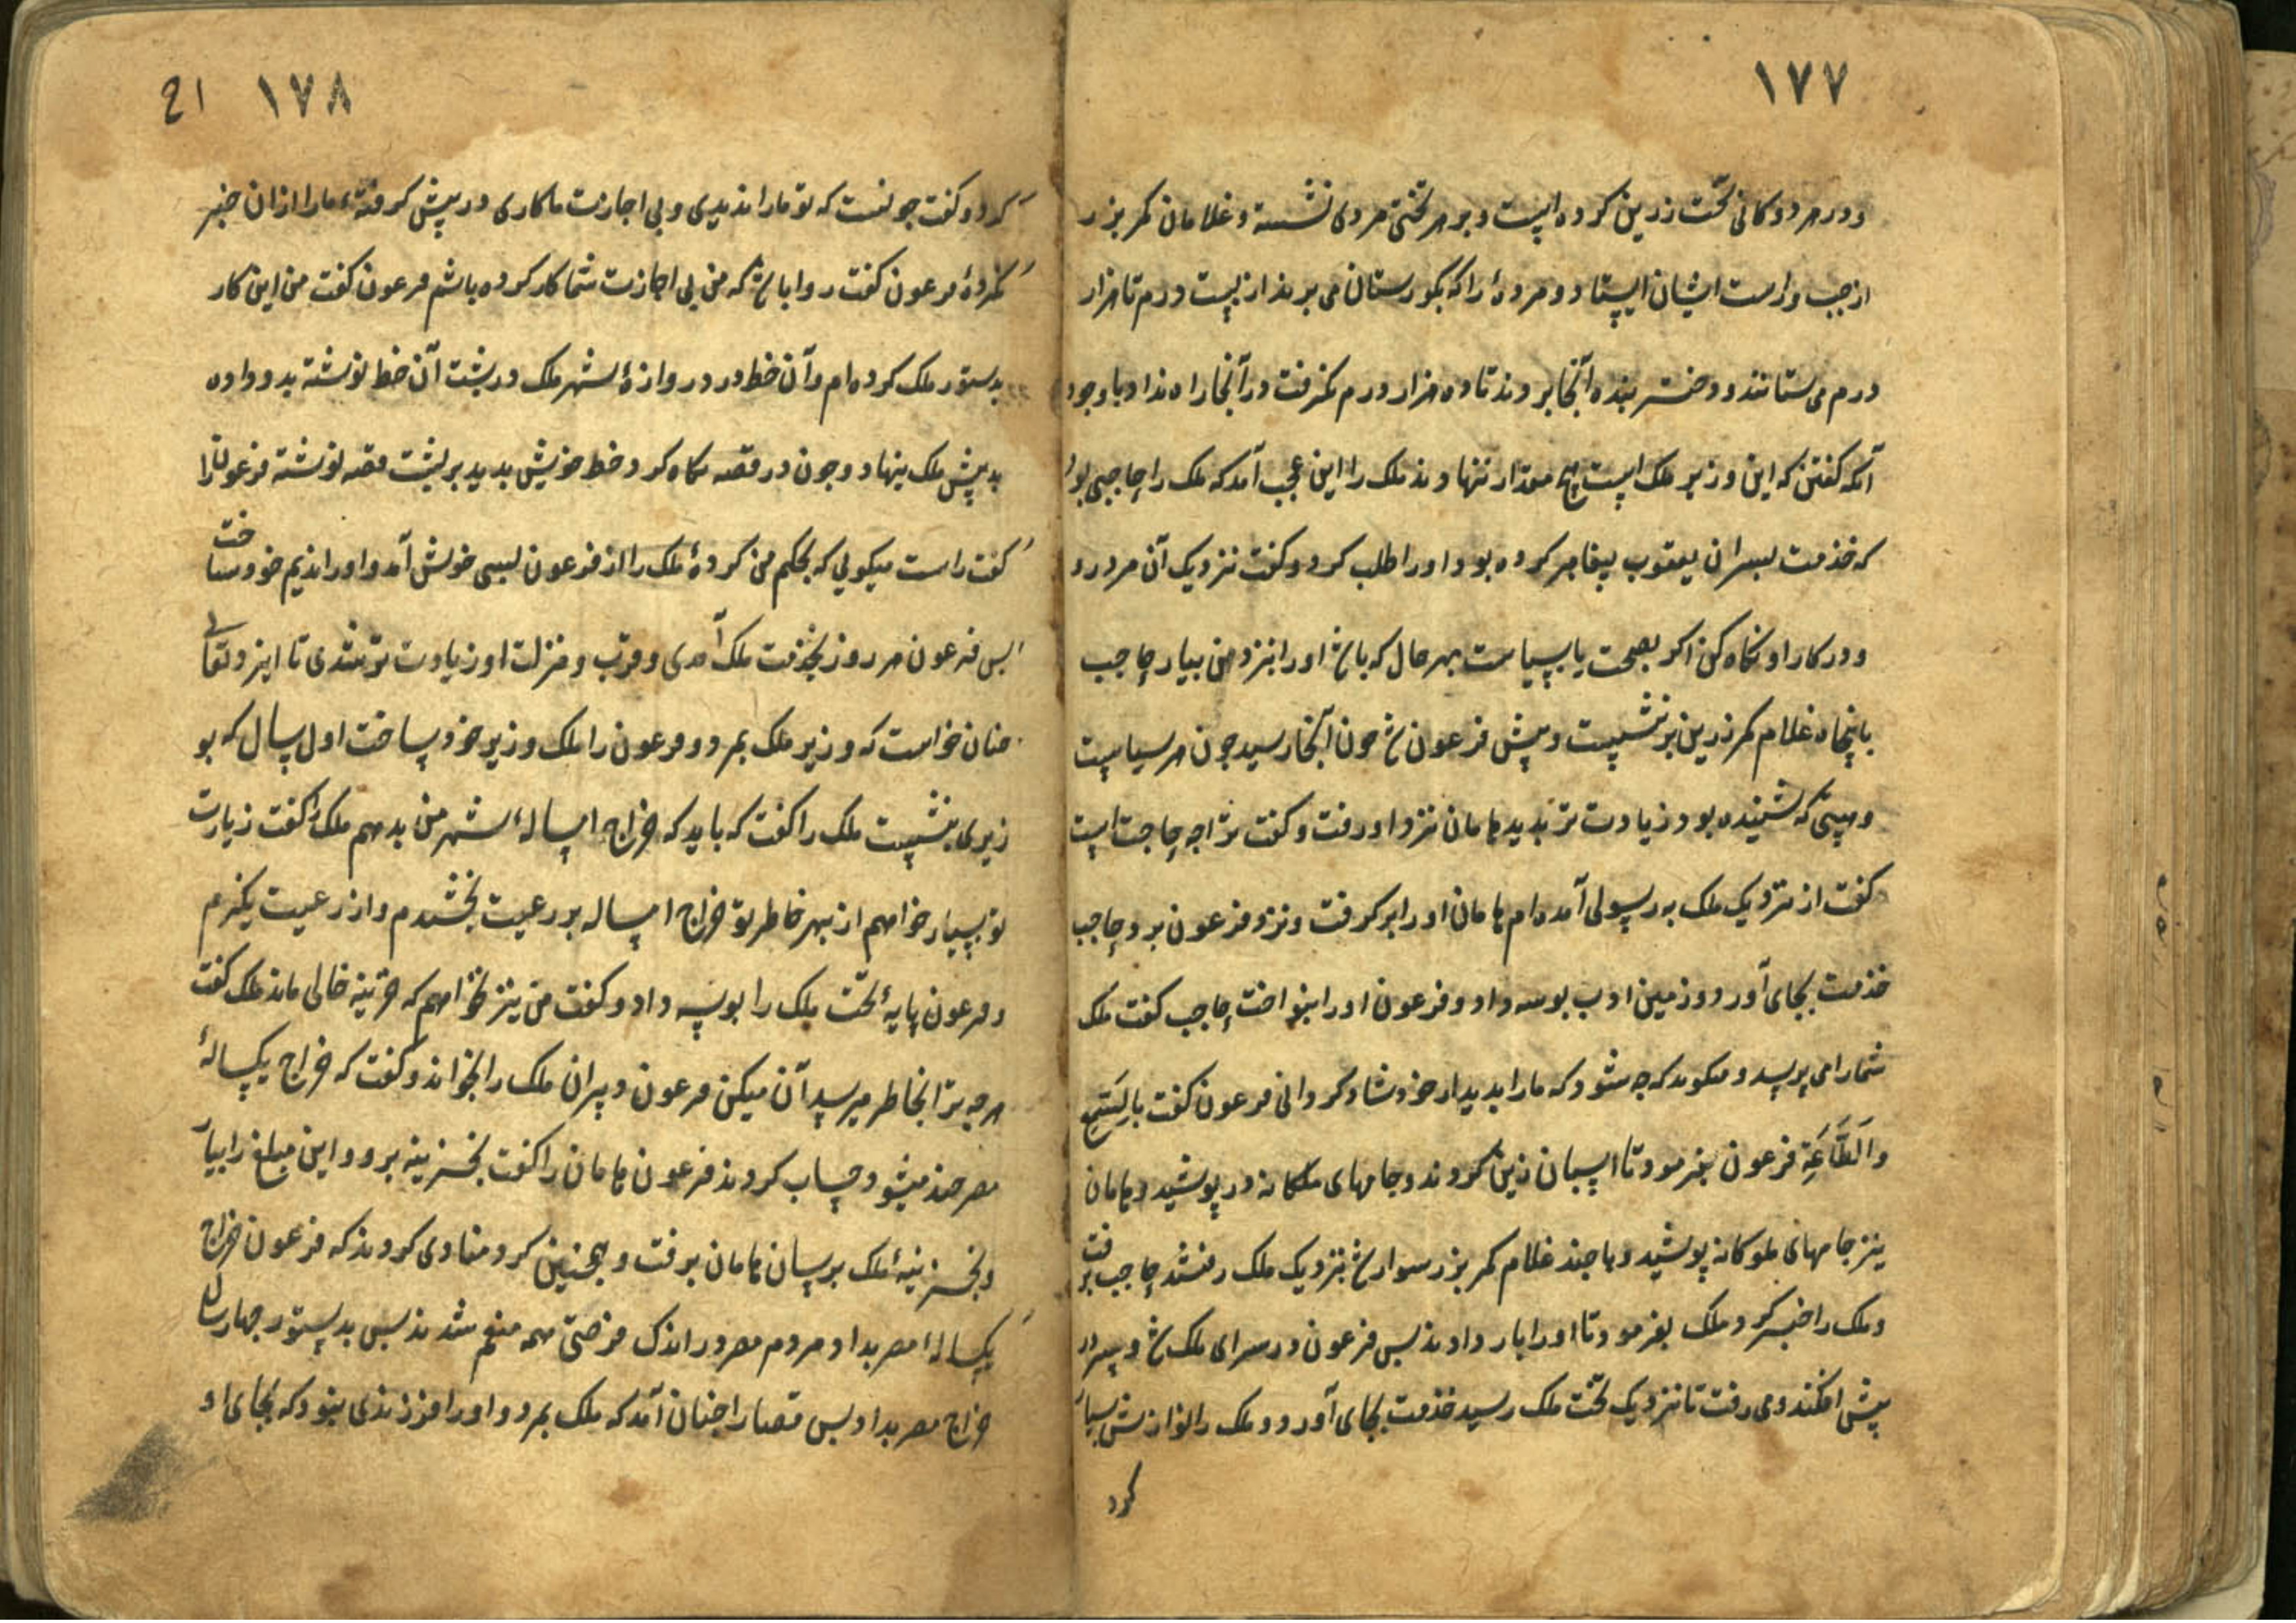 ١٧٧
و در هر دوکانی تخت زرین کرده است و بر هر تختی مردی نشسته و غلامان کمر بزر
از جب و راست ایشان ایستاد و مردهٔ را که بکورستان می برند از بیست درم تا هزار
درم می ستانند و دختر بنده آنجا بردند تا ده هزار درم نکرفت در آنجا راه نداد با وجود
آنکه کفتن که این وزیر ملک است هیچ مقدار ننهادند ملک را این عجب آمد که ملک را حاجبی بود
که خدمت پسران یعقوب پیغامبر کرده بود او را طلب کرد و کفت نزدیک آن مرد رو
و در کار او نکاه کن اکر بصحت یا بسیاست بهر حال که باشد او را بنزد من بیار حاجب
با پنجاه غلام کمر زرین برنشست و پیش فرعون شد جون آنجا رسید جون هر سیاست
و هیبتی که شنیده بود زیادت تر بدید هامان نزد او رفت و کفت ترا چه حاجت است
کفت از نزدیک ملک به رسولی آمده ام هامان او را بر کرفت و نزد فرعون برد حاجب
خدمت بجای آورد و زمین ادب بوسه داد و فرعون او را بنواخت حاجب کفت ملک
شما را می پرسد و میکوید که چه شود که ما را بدیدار خود شاد کردانی فرعون کفت بالسمع
والطاعة فرعون بفرمود تا اسبان زین کردند و جامهای ملکانه در پوشید و هامان
نیز جامهای ملوکانه پوشید و با چند غلام کمر بزر سوار شد بنزدیک ملک رفتند حاجب برفت
و ملک را خبر کرد ملک بفرمود تا او را بار دادند پس فرعون در سرای ملک شد و سر در
پیش افکند و می رفت تا نزدیک تخت ملک رسید خدمت بجای آورد و ملک را نوازش بسیار
کرد
١٧٨ ١ح
کرد و کفت جونست که تو ما را ندیدی و بی اجازت ما کاری در پیش کرفتهٔ ما را از ان خبر
نکردهٔ فرعون کفت روا باشد که من بی اجازت شما کار کرده باشم فرعون کفت من این کار
بدستور ملک کرده ام و آن خط در دروازهٔ شهر ملک در پشت آن خط نوشته بدو داده
پیش ملک بنهاد و جون در قصه نکاه کرد خط خویش بدید بر پشت قصه نوشته فرعون را
کفت راست میکویی که بحکم من کردهٔ ملک را از فرعون بسی خوش آمد و او را ندیم خود ساخت
پس فرعون هر روز بخدمت ملک آمدی و قرب و منزلت او زیادت تر شدی تا ایزد تعالی
جنان خواست که وزیر ملک بمرد و فرعون را ملک وزیر خود ساخت اول سال که بو
زیری بنشست ملک را کفت که باید که خراج امسالهٔ شهر من بدهم ملک را کفت زیارت
تو بسیار خواهم از بهر خاطر تو خراج امساله بر رعیت بخشیدم و از رعیت نکیرم
و فرعون پایهٔ تخت ملک را بوسه داد و کفت من نیز نخواهم که خزینه خالی ماند ملک کفت
هر چه ترا بخاطر میرسد آن میکن فرعون دبیران ملک را بخواند و کفت که خراج یکسالهٔ
مصر چند میشود حساب کردند فرعون هامان را کفت بخزینه برو و این مبلغ را بیار
و بخزینهٔ ملک برسان هامان برفت و همچنین کرد منادی کردند که فرعون خراج
یکسالهٔ مصر بداد مردم مصر در اندک فرصتی همه منعم شدند پس بدستور جهار سال
خراج مصر بداد پس قضا را جنان آمد که ملک بمرد و او را فرزندی نبود که بجای او